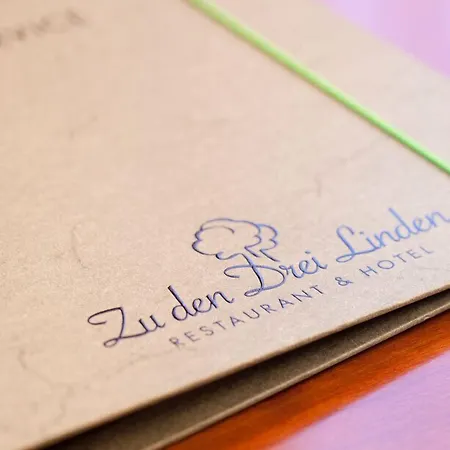 Zu den Drei Linden
RESTAURANT & HOTEL